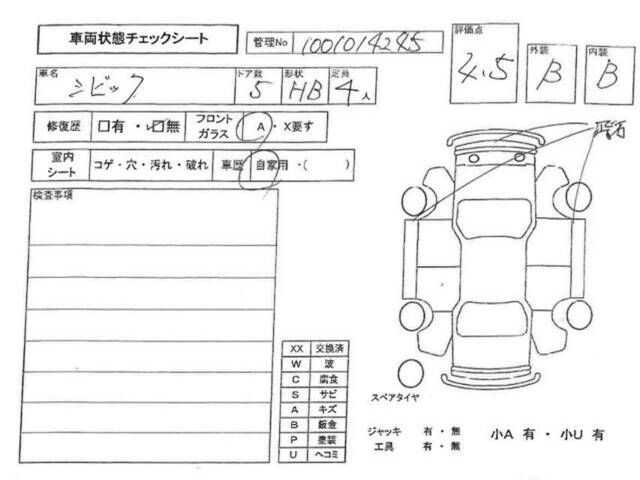 車両状態チェックシート
管理No 1001014245
評価点 4.5
外装 B
内装 B
車名 シビック
ドア数 5
形状 HB
定員 4人
修復歴 □有・☑無
フロントガラス A・X要す
室内シート コゲ・穴・汚れ・破れ
車歴 自家用・( )
検査事項
XX 交換済
W 波
C 腐食
S サビ
A キズ
B 鈑金
P 塗装
U ヘコミ
スペアタイヤ
ジャッキ 有・無
工具 有・無
小A 有・小U 有